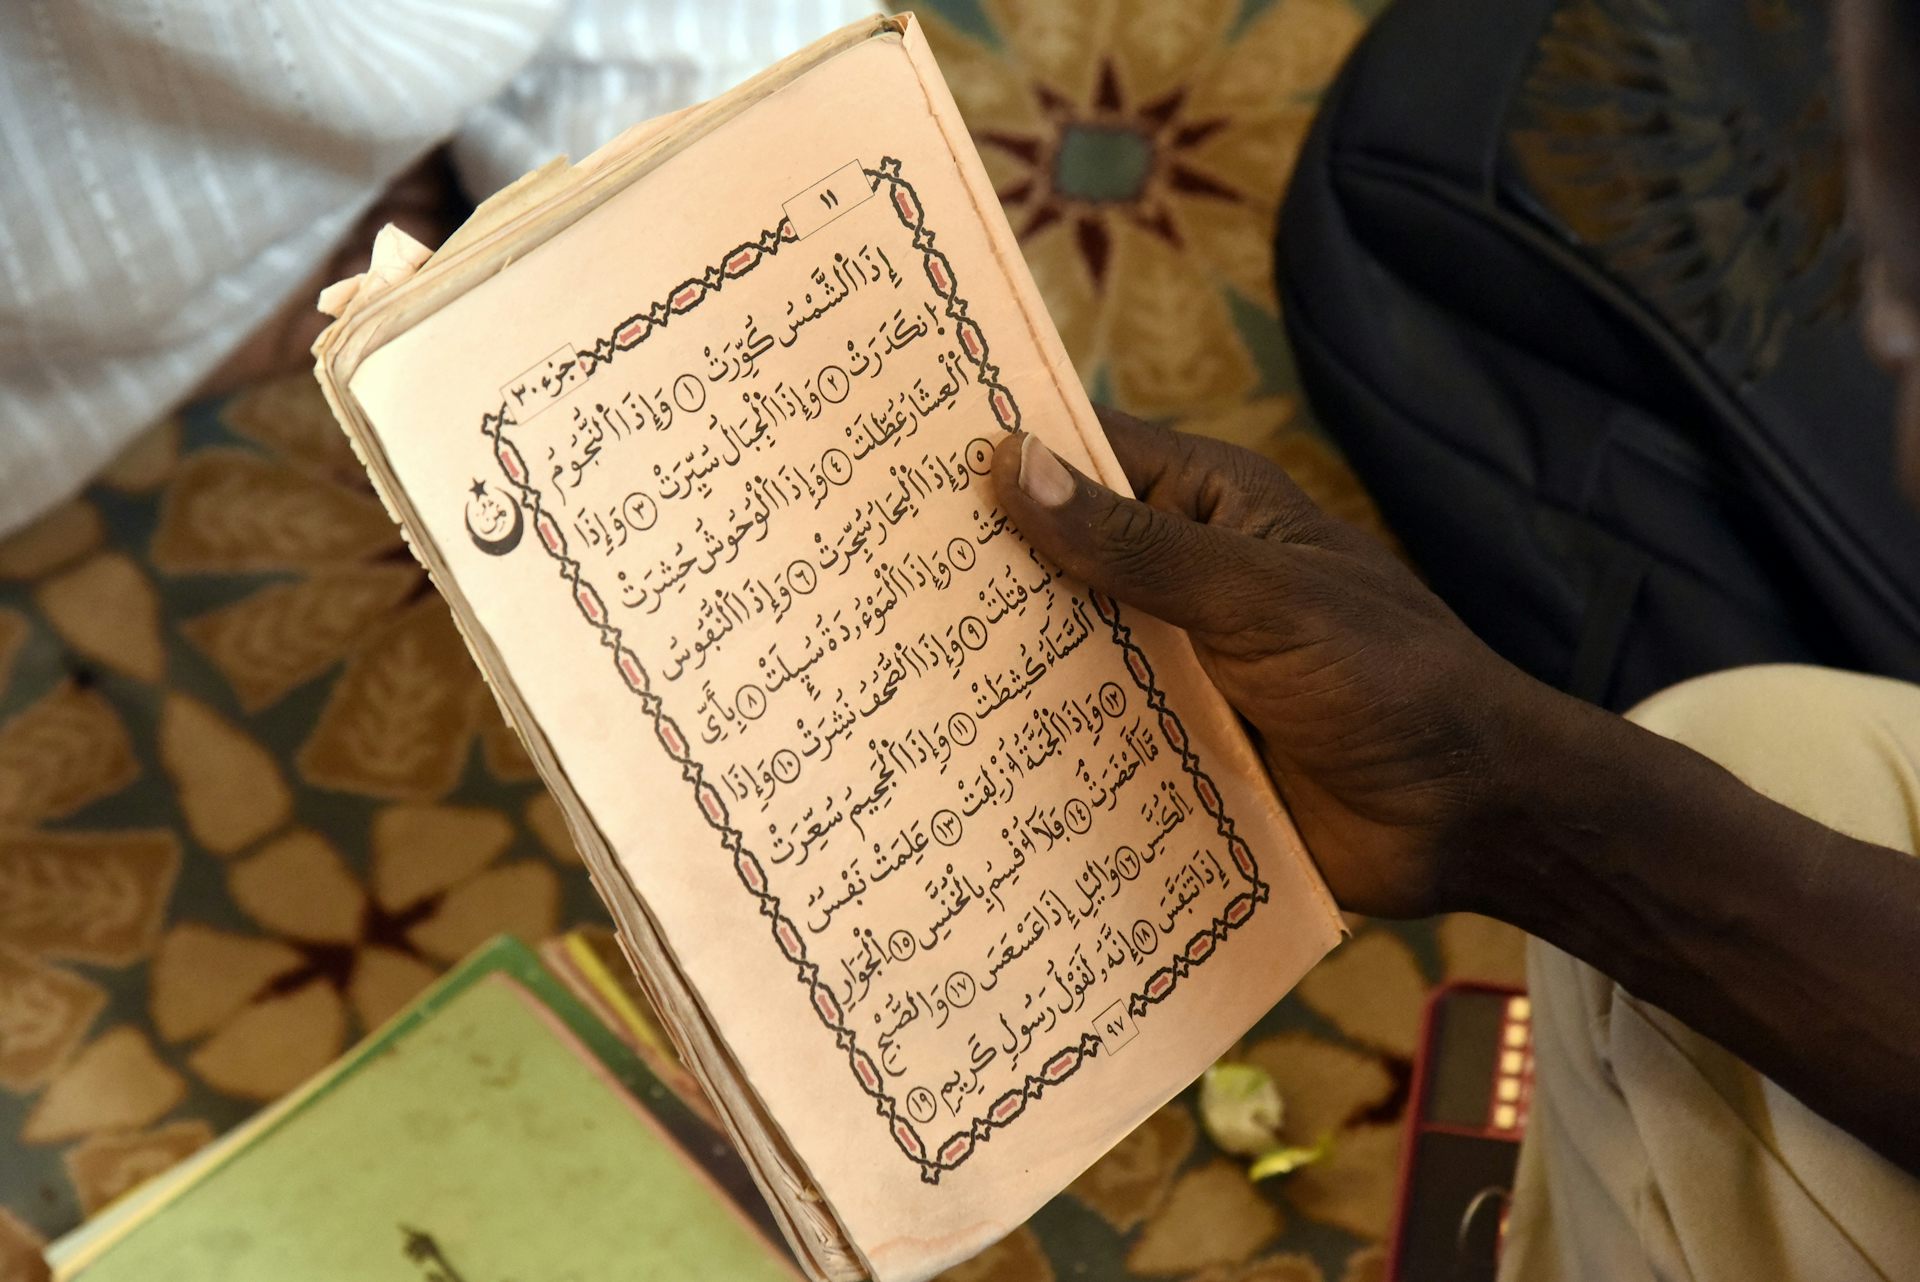 ١١
جزء ٣٠
إِذَا اَ۬لشَّمْسُ كُوِّرَتْ ١ وَإِذَا اَ۬لنُّجُومُ
اُ۪نكَدَرَتْ ٢ وَإِذَا اَ۬لْجِبَالُ سُيِّرَتْ ٣ وَإِذَا
اَ۬لْعِشَارُ عُطِّلَتْ ٤ وَإِذَا اَ۬لْوُحُوشُ حُشِرَتْ
ثمن
٥ وَإِذَا اَ۬لْبِحَارُ سُجِّرَتْ ٦ وَإِذَا اَ۬لنُّفُوسُ
٧ وَإِذَا اَ۬لْمَوْءُۥدَةُ سُئِلَتْ ٨ بِأَيِّ
قُتِلَتْ ٩ وَإِذَا اَ۬لصُّحُفُ نُشِرَتْ ١٠ وَإِذَا
اَ۬لسَّمَآءُ كُشِطَتْ ١١ وَإِذَا اَ۬لْجَحِيمُ سُعِّرَتْ
١٢ وَإِذَا اَ۬لْجَنَّةُ أُزْلِفَتْ ١٣ عَلِمَتْ نَفْسٌ
مَّآ أَحْضَرَتْ ١٤ فَلَآ أُقْسِمُ بِالْخُنَّسِ ١٥ اِ۬لْجَوَارِ
اِ۬لْكُنَّسِ ١٦ وَاليْلِ إِذَا عَسْعَسَ ١٧ وَالصُّبْحِ
إِذَا تَنَفَّسَ ١٨ إِنَّهُۥ لَقَوْلُ رَسُولٍ كَرِيمٍ ١٩
٩٧